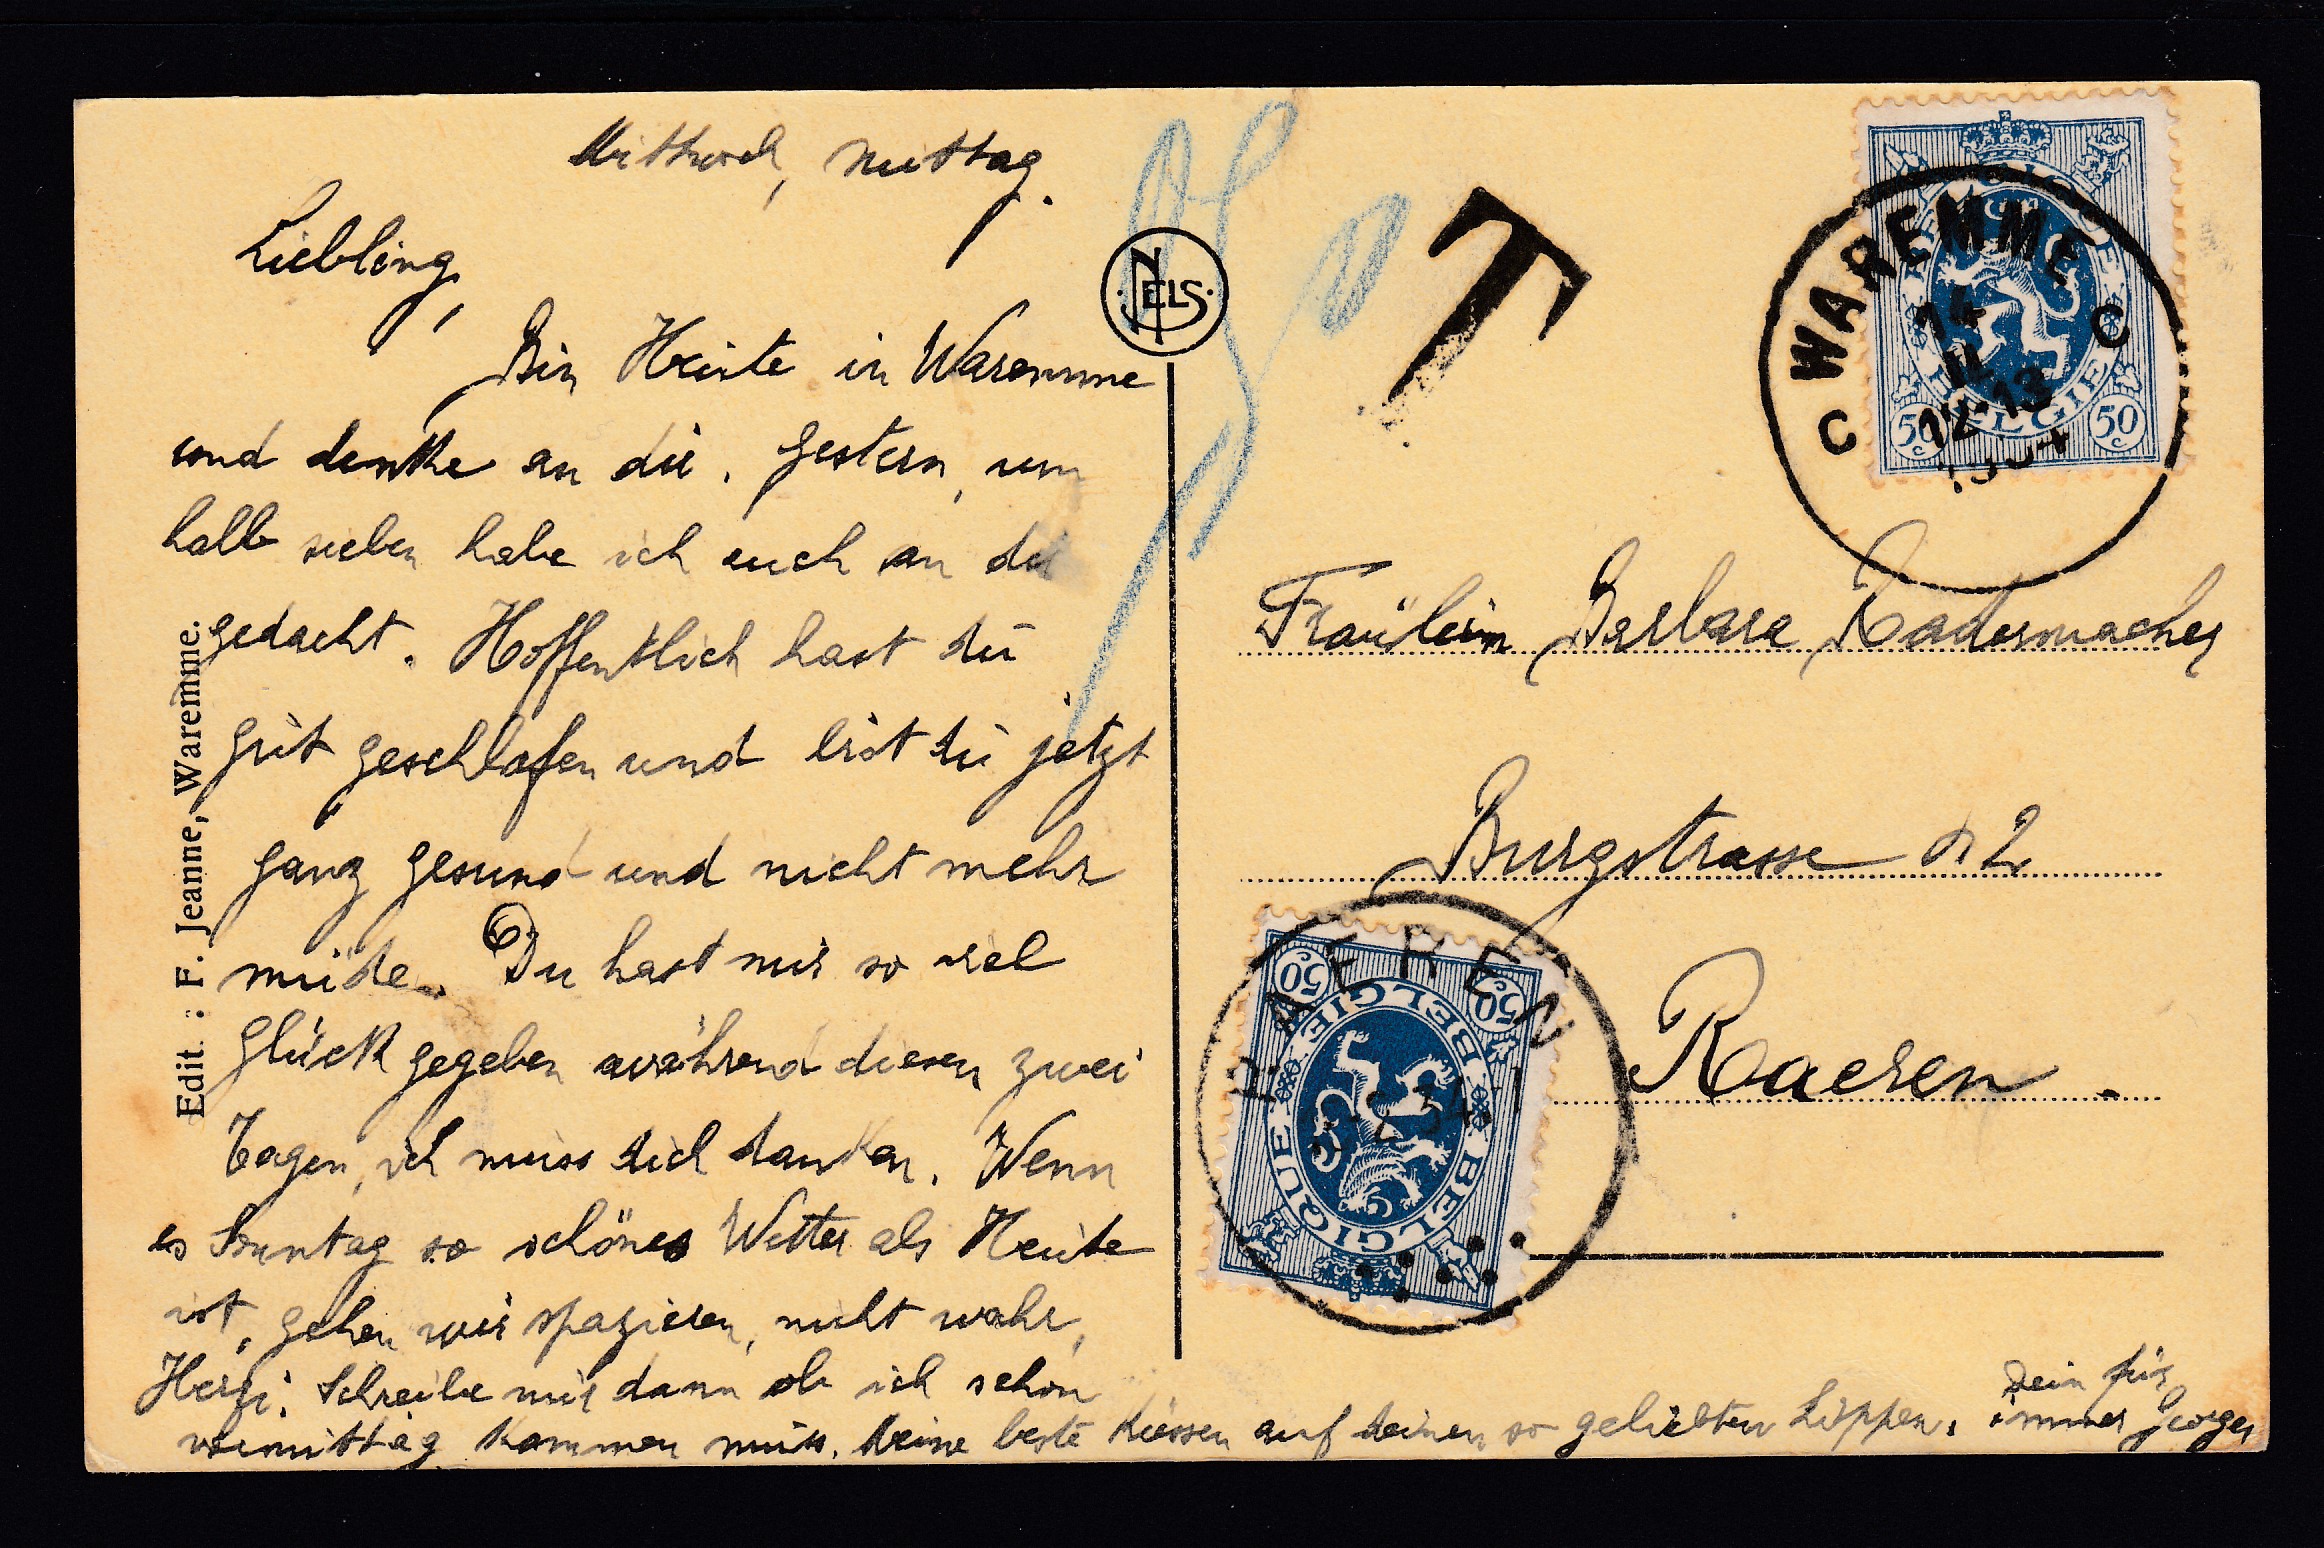 Mittwoch, mittag.
Liebling,
Bin Heute in Waremme
und denke an dir. Gestern, um
halb sieben habe ich auch an dir
gedacht. Hoffentlich hast du
gut geschlafen und bist du jetzt
ganz gesund und nicht mehr
müde. Du hast mir so viel
Glück gegeben während diesen zwei
Tagen, ich muss dich danken. Wenn
es Sonntag so schönes Wetter als Heute
ist, gehen wir spazieren, nicht wahr,
Herzi. Schreibe mir dann ob ich schon
vormittag kommen muss. Meine beste Küssen auf deinen so geliebten Lippen. Dein für
immer Georges
Edit. : F. Jeanne, Waremme.
NELS
T
WAREMME
C C
14
II
12-13
1934
BELGIQUE BELGIE
50c 50c
Fräulein Barbara Radermacher
Burgstrasse n 2
Raeren.
RAEREN
-2-34
BELGIQUE BELGIE
50c 50c